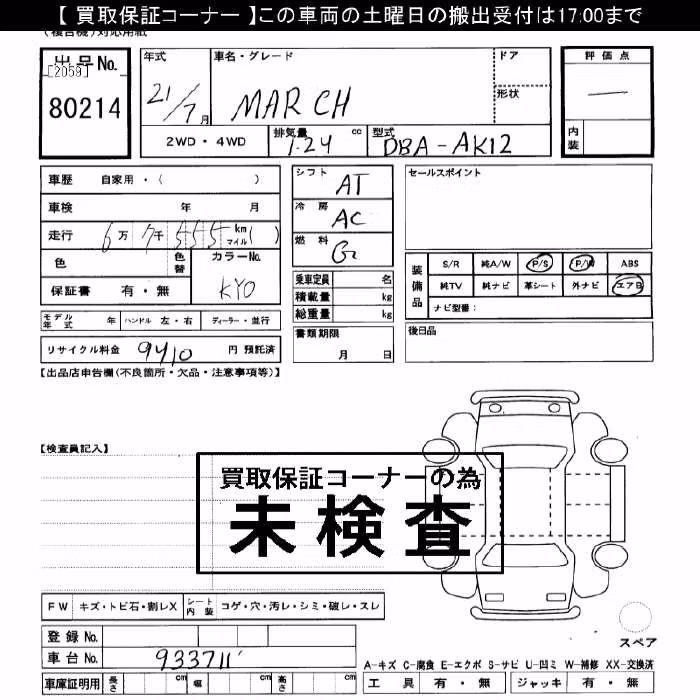 【 買取保証コーナー 】この車両の土曜日の搬出受付は17:00まで
(複合機)対応用紙
出品No.
[2059]
80214
年式
21/7月
車名・グレード
MARCH
ドア
形状
評価点
—
内装
2WD・4WD
排気量
1.24 cc
型式
DBA-AK12
車歴 自家用・( )
車検 年 月
走行 6万 7千 555 km マイル( )
色
色替
カラーNo.
KYO
保証書 有・無
シフト
AT
冷房
AC
燃料
G
乗車定員 名
積載量 kg
総重量 kg
書類期限
月 日
セールスポイント
装備品
S/R 純A/W P/S P/W ABS
純TV 純ナビ 革シート 外ナビ エアB
ナビ型番:
後日品
モデル年式 年 ハンドル 左・右 ディーラー・並行
リサイクル料金 9410 円 預託済
【出品店申告欄(不良箇所・欠品・注意事項等)】
【検査員記入】
買取保証コーナーの為
未検査
FW キズ・トビ石・割レX シート内装 コゲ・穴・汚レ・シミ・破レ・スレ
登録No.
車台No. 933711
車庫証明用 長さ cm 幅 cm 高さ cm
スペア
A-キズ C-腐食 E-エクボ S-サビ U-凹ミ W-補修 XX-交換済
工具 有・無 ジャッキ 有・無